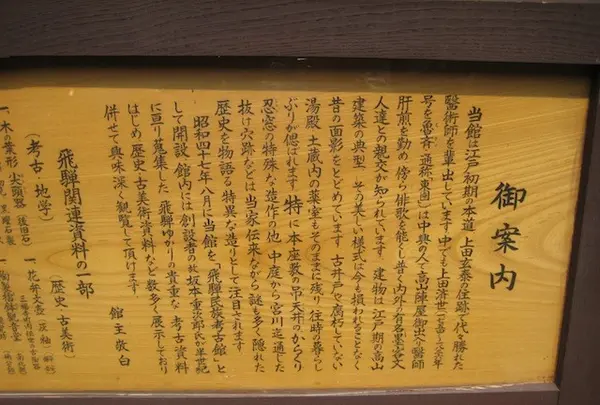 御案内
当館は江戸初期の本道 上田玄泰の住録で代々勝れた
醫術師を輩出しています 中でも上田済世
号を魚斉 通称東園 は中興の人で高山陣屋御出入り醫師
肝煎を勤め 傍ら俳歌を能くし普く内外の有名墨客文
人達との親交が知られています 建物は江戸期の高山
建築の典型 その美しい様式は今も損われることなく
昔の面影をとどめています 古井戸や腐朽していない
湯殿 土蔵内の薬室もそのままに残り 往時の暮らし
ぶりが偲ばれます 特に本座敷の吊天井のからくり
忍窓の特殊な造作の他 中庭から宮川迄通じた
抜け穴跡などは当家伝来ながら謎も多く隠れた
歴史を物語る特異な造りとして注目されます
昭和四十七年八月に当館を「飛騨民族考古館」と
して開設 館内には創設者の故坂本重次郎氏が半世紀
に亘り蒐集した 飛騨ゆかりの貴重な 考古資料
はじめ 歴史 古美術資料など数多く展示しており
併せて興味深く観覧して頂けます
館主敬白
飛騨関連資料の一部
(考古・地学) (歴史・古美術)
一、木の葉形尖頭器